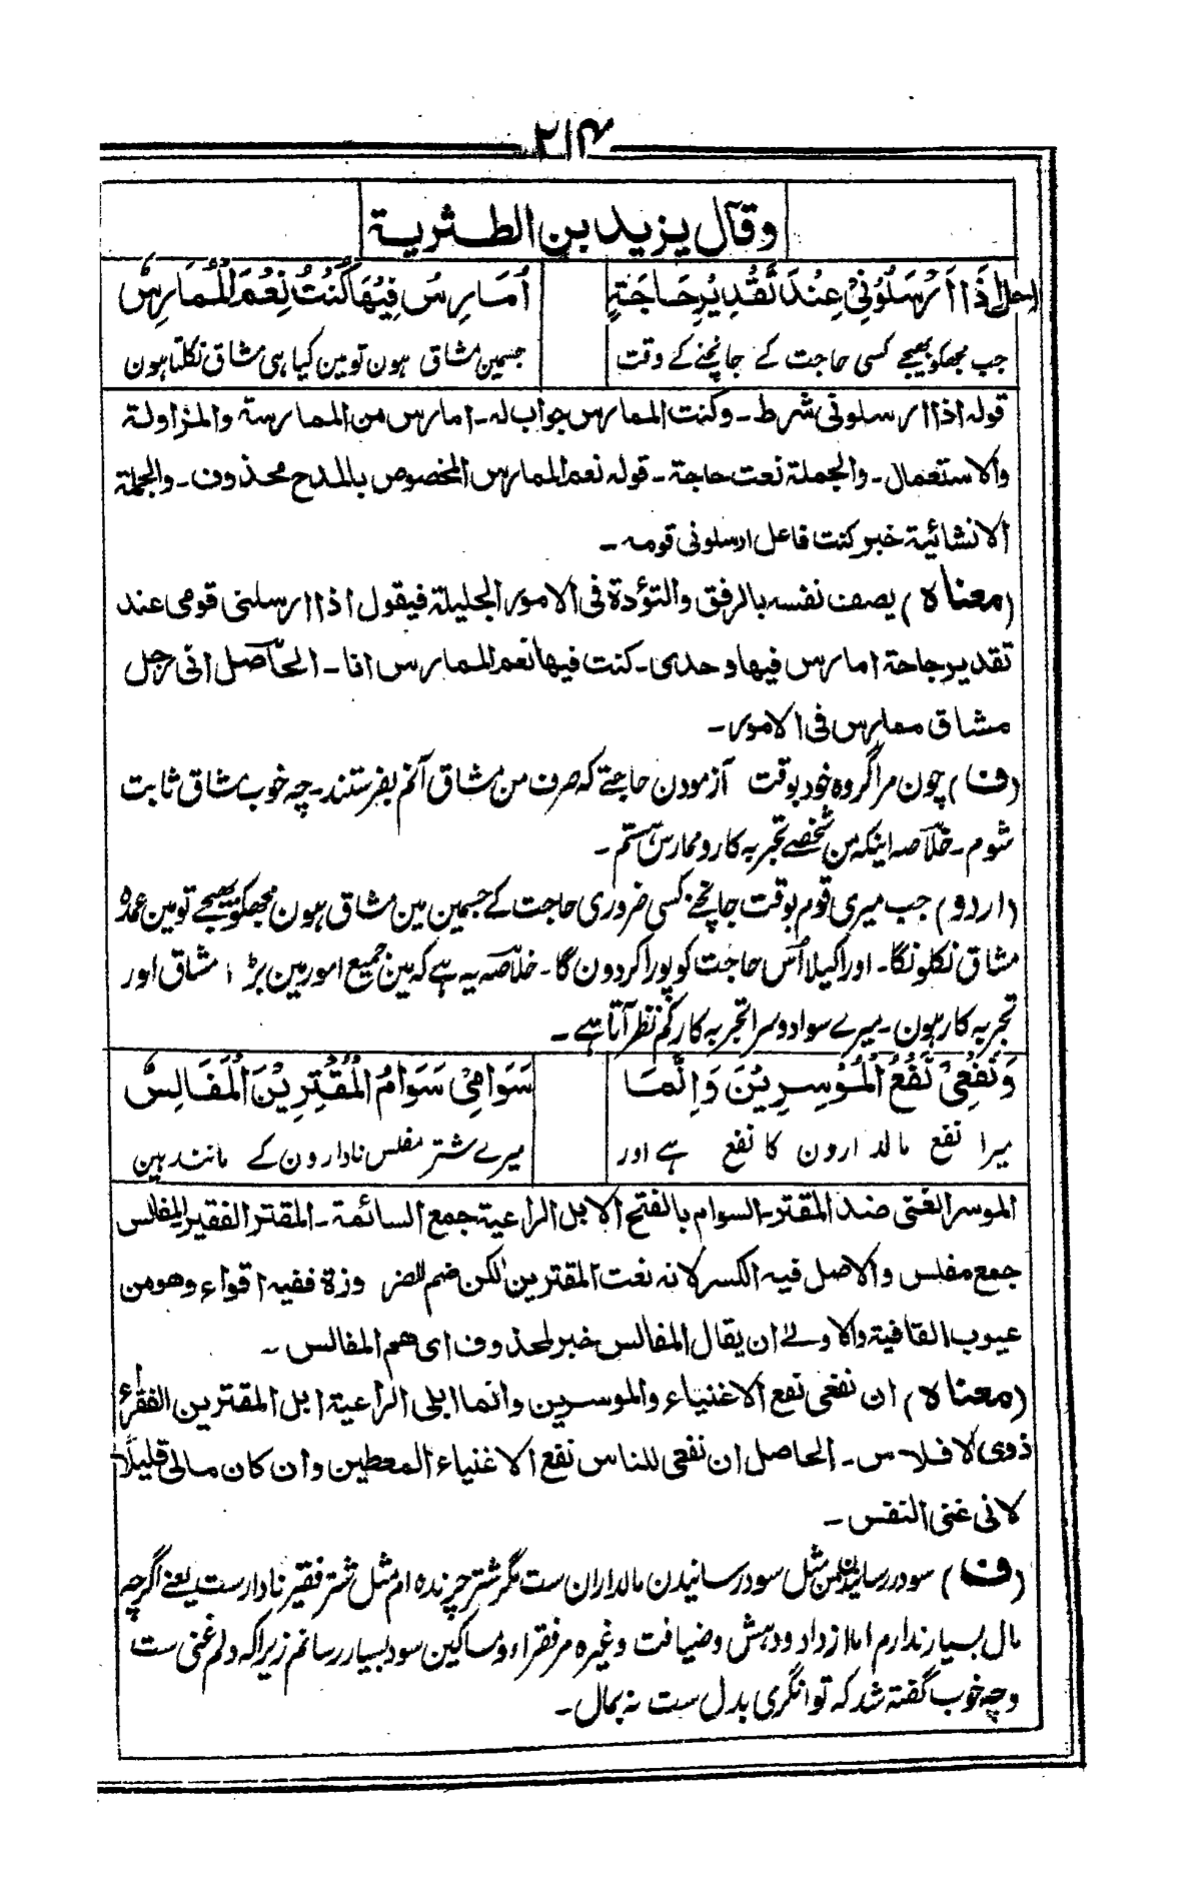 ۲۱۴
وقال یزید بن الطثریة
اِذَا اَرْسَلُوْنِیْ عِنْدَ تَقْدِیْرِ حَاجَةٍ اُمَارِسُ فِیْهَا کُنْتُ نِعْمَ الْمُمَارِسُ
جب مجھکو بھیجے کسی حاجت کے جانچنے کے وقت جسمین مشاق ہون تو مین کیا ہی مشاق نکلتا ہون
قوله اذا ارسلونی شرط ۔ وکنت الممارس جواب له ۔ امارس من الممارسة والمزاولة
والاستعمال ۔ والجملة نعت حاجة ۔ قوله نعم الممارس المخصوص بالمدح محذوف ۔ والجملة
الانشائیة خبر کنت فاعل ارسلونی قومه ۔
(معناه) یصف نفسه بالرفق والتؤدة فی الامور الجلیلة فیقول اذا ارسلنی قومی عند
تقدیر حاجة امارس فیها وحدی ۔ کنت فیها نعم الممارس انا ۔ الحاصل انی رجل
مشاق ممارس فی الامور ۔
(ف) چون مرا گروه خود بوقت آزمودن حاجتے که صرف من مشاق آنم بفرستند ۔ چه خوب مشاق ثابت
شوم ۔ خلاصه اینکه من شخصے تجربه کار و ممارس هستم ۔
(اردو) جب میری قوم بوقت جانچنے کسی ضروری حاجت کے جسمین مین مشاق ہون مجھکو بھیجے تو مین عمدہ
مشاق نکلونگا ۔ اور اکیلا اُس حاجت کو پورا کردون گا ۔ خلاصہ یہ ہے کہ مین جمیع امور مین بڑا مشاق اور
تجربہ کار ہون ۔ میرے سوا دوسرا تجربہ کار کم نظر آتا ہے ۔
وَنَفْعِیْ نَفْعُ الْمُوْسِرِیْنَ وَاِنَّمَا سَوَامِیْ سَوَامُ الْمُقْتِرِیْنَ الْمَفَالِسُ
میرا نفع مالدارون کا نفع ہے اور میرے شتر مفلس نادارون کے مانند ہین
الموسر الغنی ضد المقتر ۔ السوام بالفتح الابل الراعیة جمع السائمة ۔ المقتر الفقیر المفالس
جمع مفلس والاصل فیه الکسر لانه نعت المقترین لکن ضم للضرورة ففیه اقواء وهو من
عیوب القافیة والاولے ان یقال المفالس خبر لمحذوف ای هم المفالس ۔
(معناه) ان نفعی نفع الاغنیاء والموسرین وانما ابلی الراعیة ابل المقترین الفقراء
ذوی الافلاس ۔ الحاصل ان نفعی للناس نفع الاغنیاء المعطین وان کان مالی قلیلًا
لانی غنی النفس ۔
(ف) سود رسانیدن من مثل سود رسانیدن مالداران ست مگر شتر چرنده ام مثل شتر فقیر نادار ست یعنے اگرچه
مال بسیار ندارم اما از داد و دهش و ضیافت و غیره مر فقراء و مساکین سود بسیار رسانم زیرا که دلم غنی ست
و چه خوب گفته شد که توانگری بدل ست نه بمال ۔